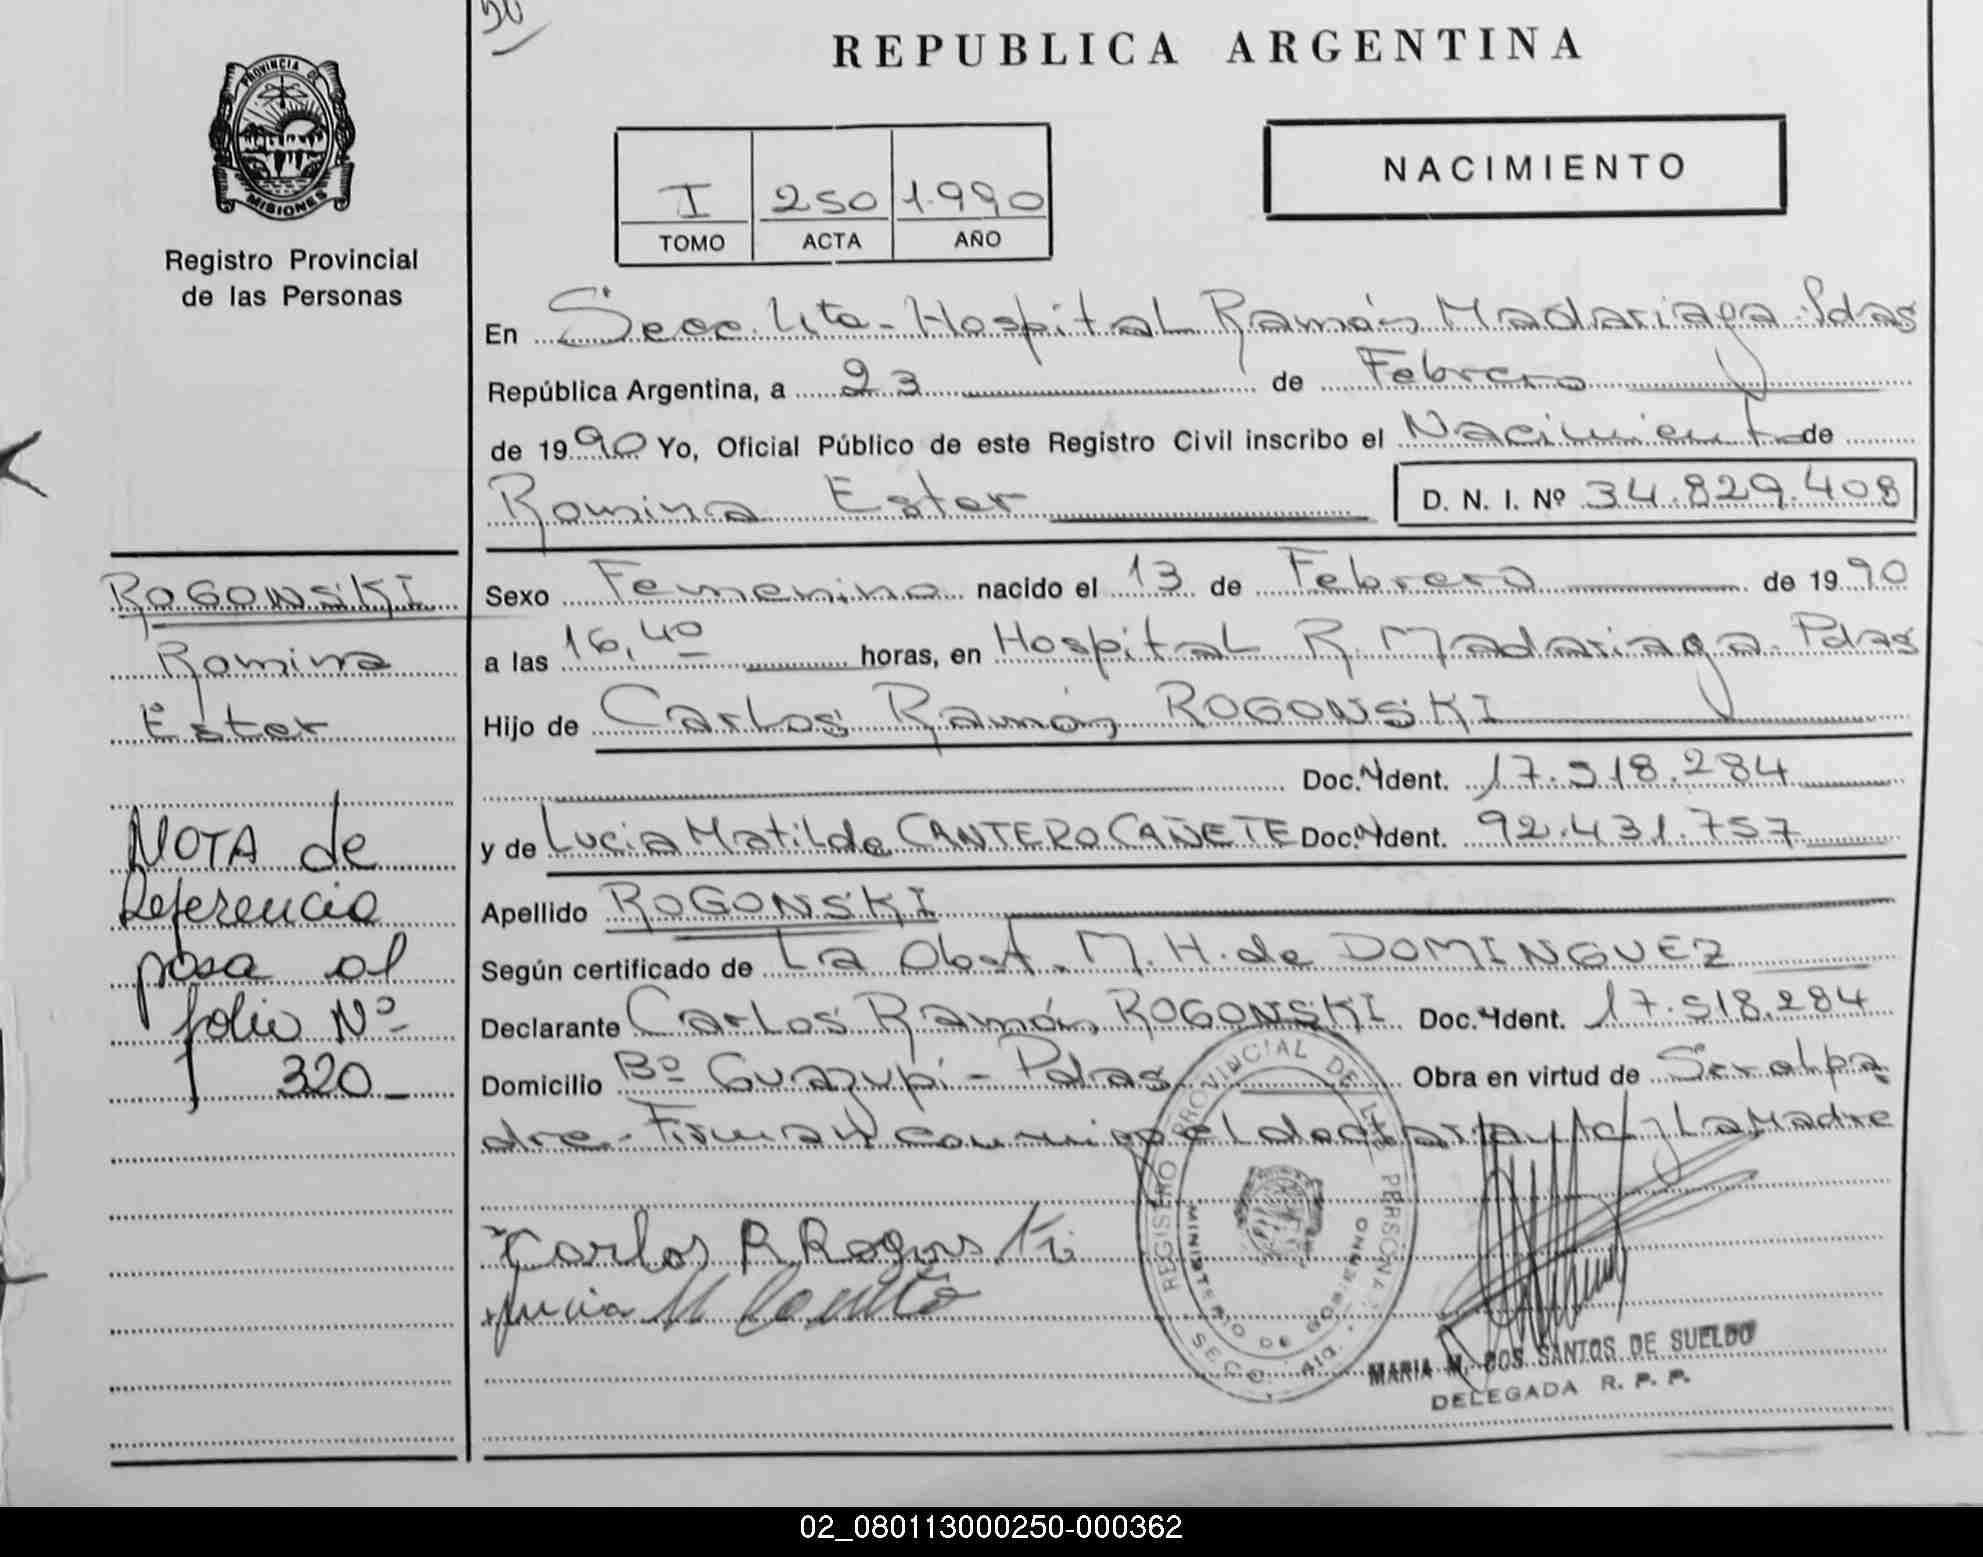 50
REPUBLICA ARGENTINA
PROVINCIA DE
MISIONES
Registro Provincial
de las Personas
NACIMIENTO
I 250 1.990
TOMO ACTA AÑO
En Secc. 4ta - Hospital Ramón Madariaga. Pdas
República Argentina, a 23 de Febrero
de 1990 Yo, Oficial Público de este Registro Civil inscribo el Nacimiento de
Romina Ester D. N. I. Nº 34.829.408
ROGONSKI
Romina
Ester
NOTA de
Referencia
pasa al
folio Nº
320
Sexo Femenino nacido el 13 de Febrero de 1990
a las 16,40 horas, en Hospital R. Madariaga. Pdas
Hijo de Carlos Ramón ROGONSKI
Doc. Ident. 17.518.284
y de Lucia Matilde CANTERO CAÑETE Doc. Ident. 92.431.757
Apellido ROGONSKI
Según certificado de La Obst. M. H. de DOMINGUEZ
Declarante Carlos Ramón ROGONSKI Doc. Ident. 17.518.284
Domicilio Bº Guazupi - Pdas Obra en virtud de Ser el pa
dre.- Firman conmigo el declarante y La Madre
Carlos R Rogonski
Lucia M
REGISTRO PROVINCIAL DE LAS PERSONAS
MINISTERIO DE GOBIERNO
SECC. 4ta.
MARIA M. DOS SANTOS DE SUELDO
DELEGADA R. P. P.
02_080113000250-000362